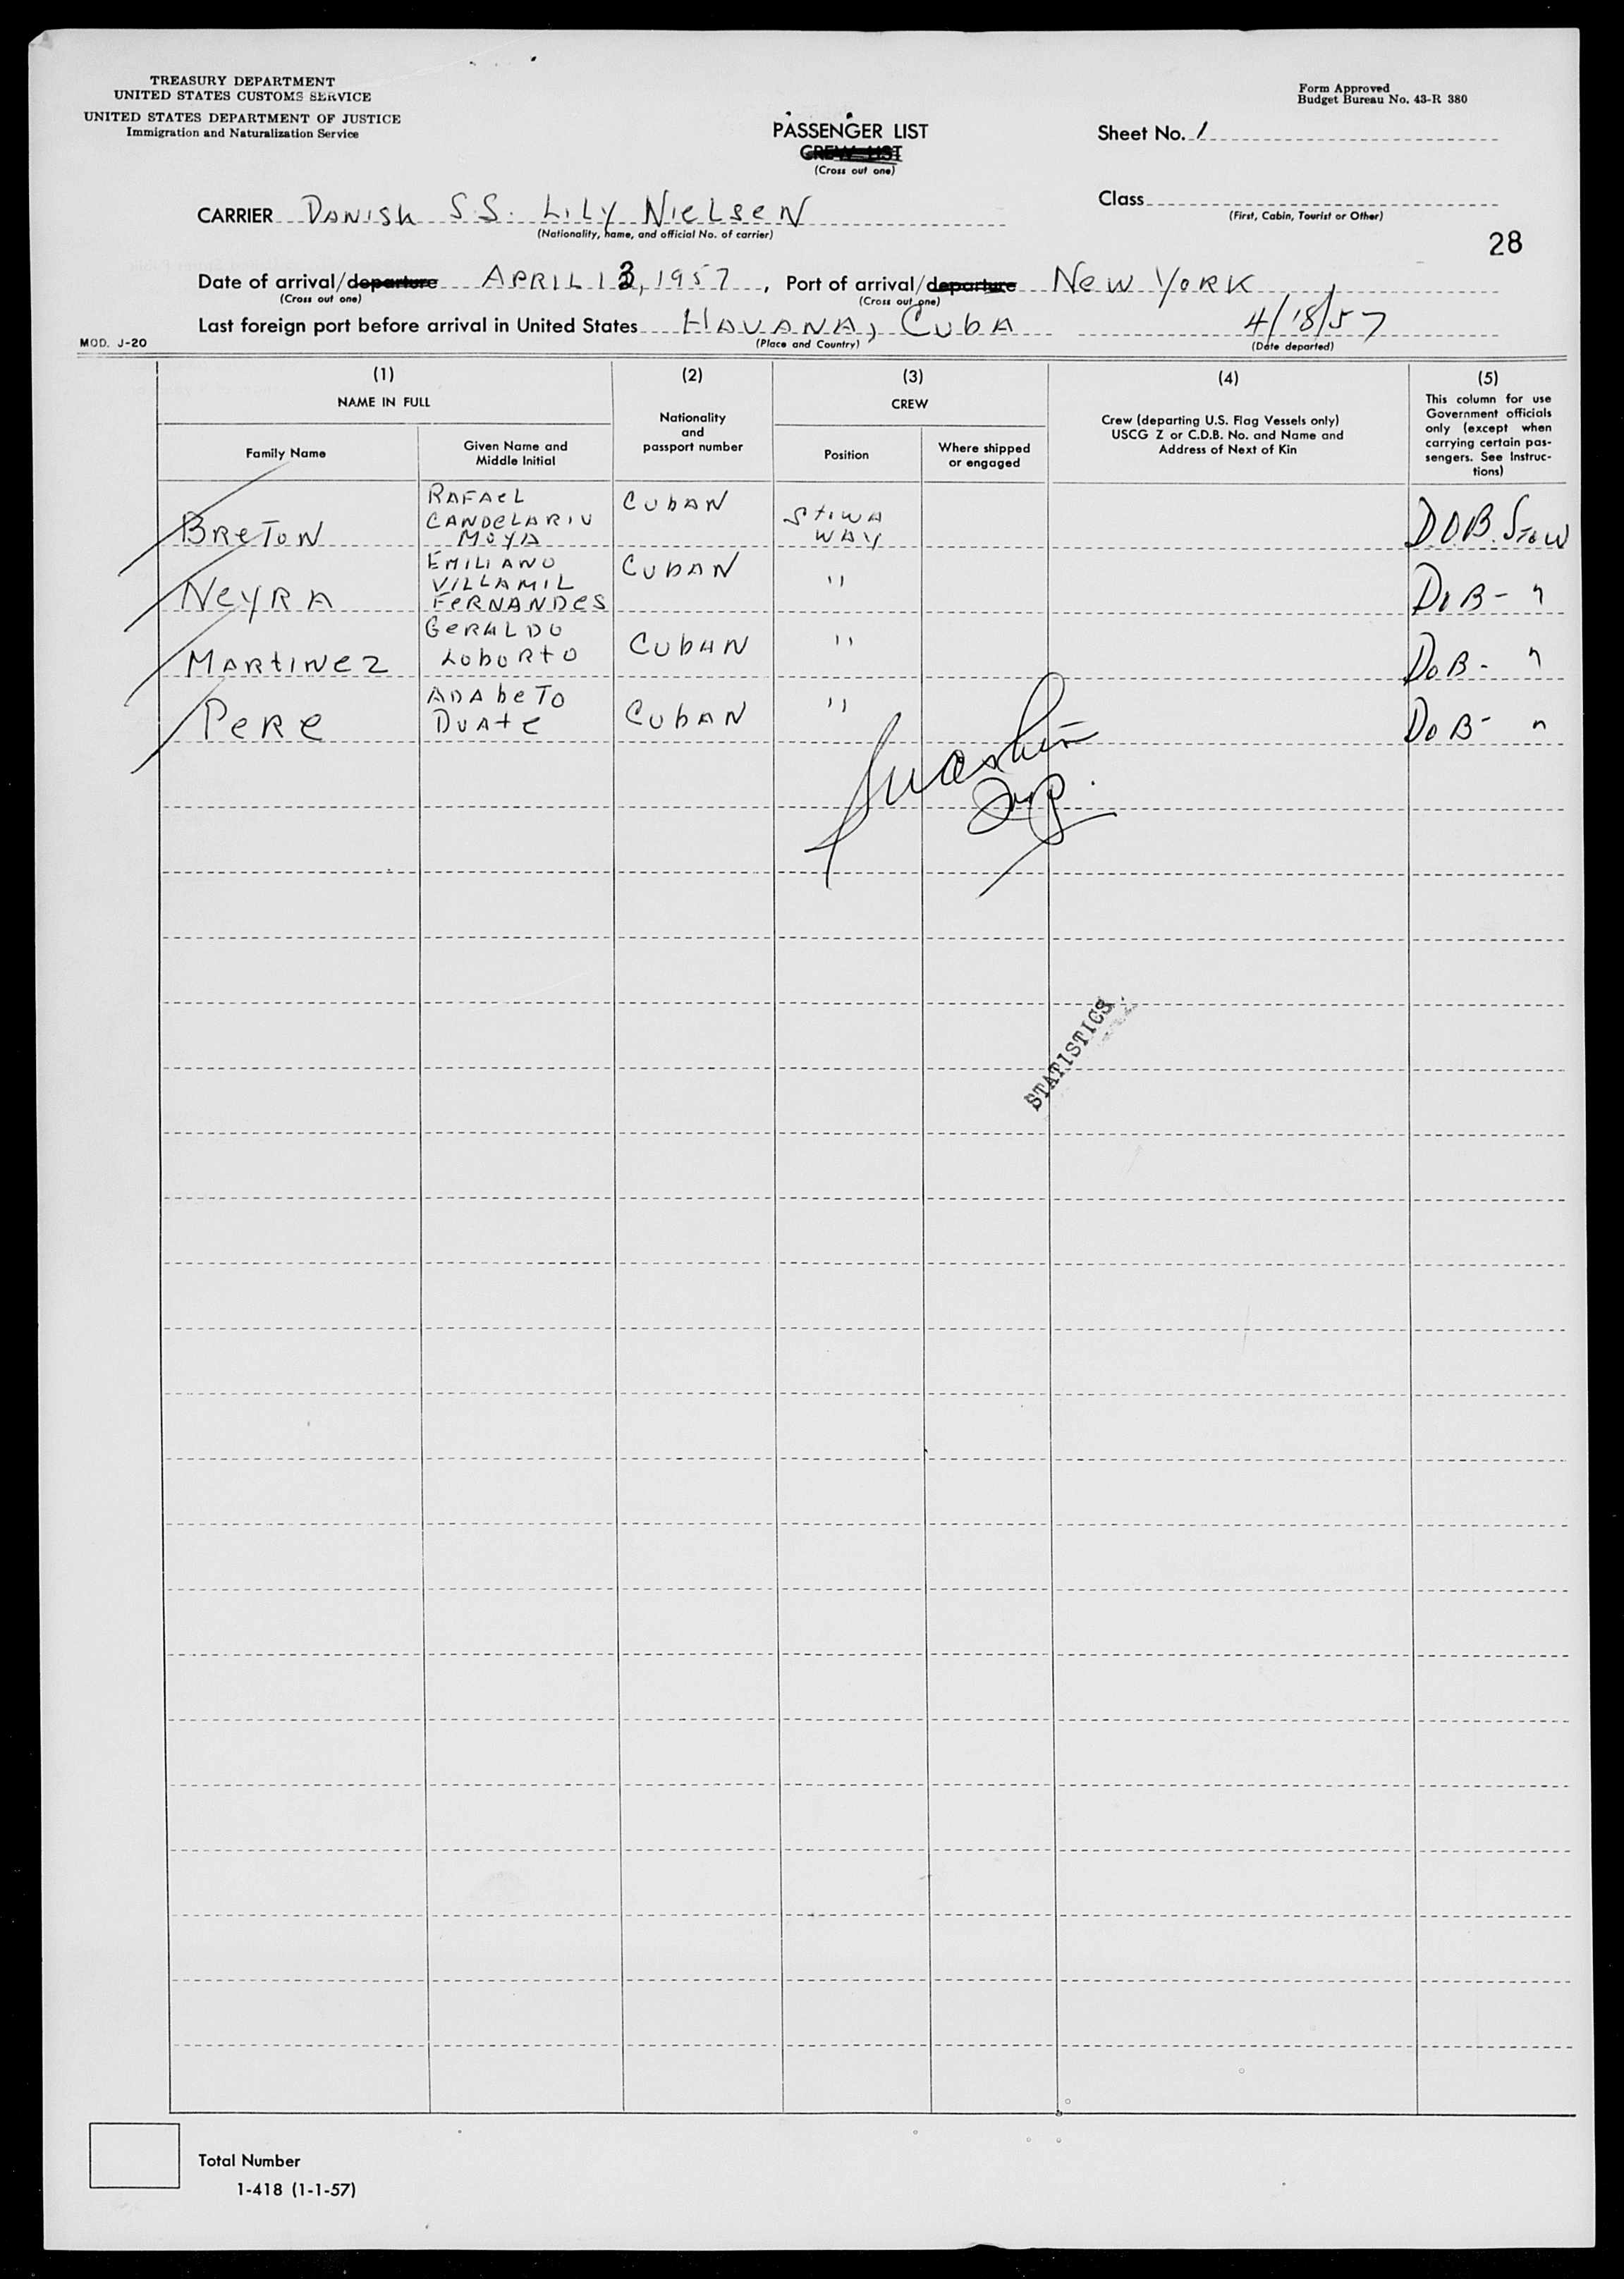 TREASURY DEPARTMENT
UNITED STATES CUSTOMS SERVICE
UNITED STATES DEPARTMENT OF JUSTICE
Immigration and Naturalization Service
Form Approved
Budget Bureau No. 43-R 380
PASSENGER LIST
CREW LIST
(Cross out one)
Sheet No. 1
CARRIER DANISH S.S. LILY NIELSEN
(Nationality, name, and official No. of carrier)
Class
(First, Cabin, Tourist or Other)
28
Date of arrival/departure APRIL 13, 1957, Port of arrival/departure NEW YORK
(Cross out one) (Cross out one)
Last foreign port before arrival in United States HAVANA, CUBA 4/18/57
(Place and Country) (Date departed)
MOD. J-20
(1) (2) (3) (4) (5)
NAME IN FULL
Family Name
Given Name and
Middle Initial
Nationality
and
passport number
CREW
Position
Where shipped
or engaged
Crew (departing U.S. Flag Vessels only)
USCG Z or C.D.B. No. and Name and
Address of Next of Kin
This column for use
Government officials
only (except when
carrying certain pas-
sengers. See Instruc-
tions)
BRETON RAFAEL CUBAN STOWA D.O.B. STOW
CANDELARIO WAY
MOYA
NEYRA EMILIANO CUBAN " DOB - "
VILLAMIL
FERNANDES
MARTINEZ GERALDO CUBAN " DOB - "
LOBORTO
PERE ADABETO CUBAN " DOB - "
DUATE
STATISTICS
Total Number
1-418 (1-1-57)